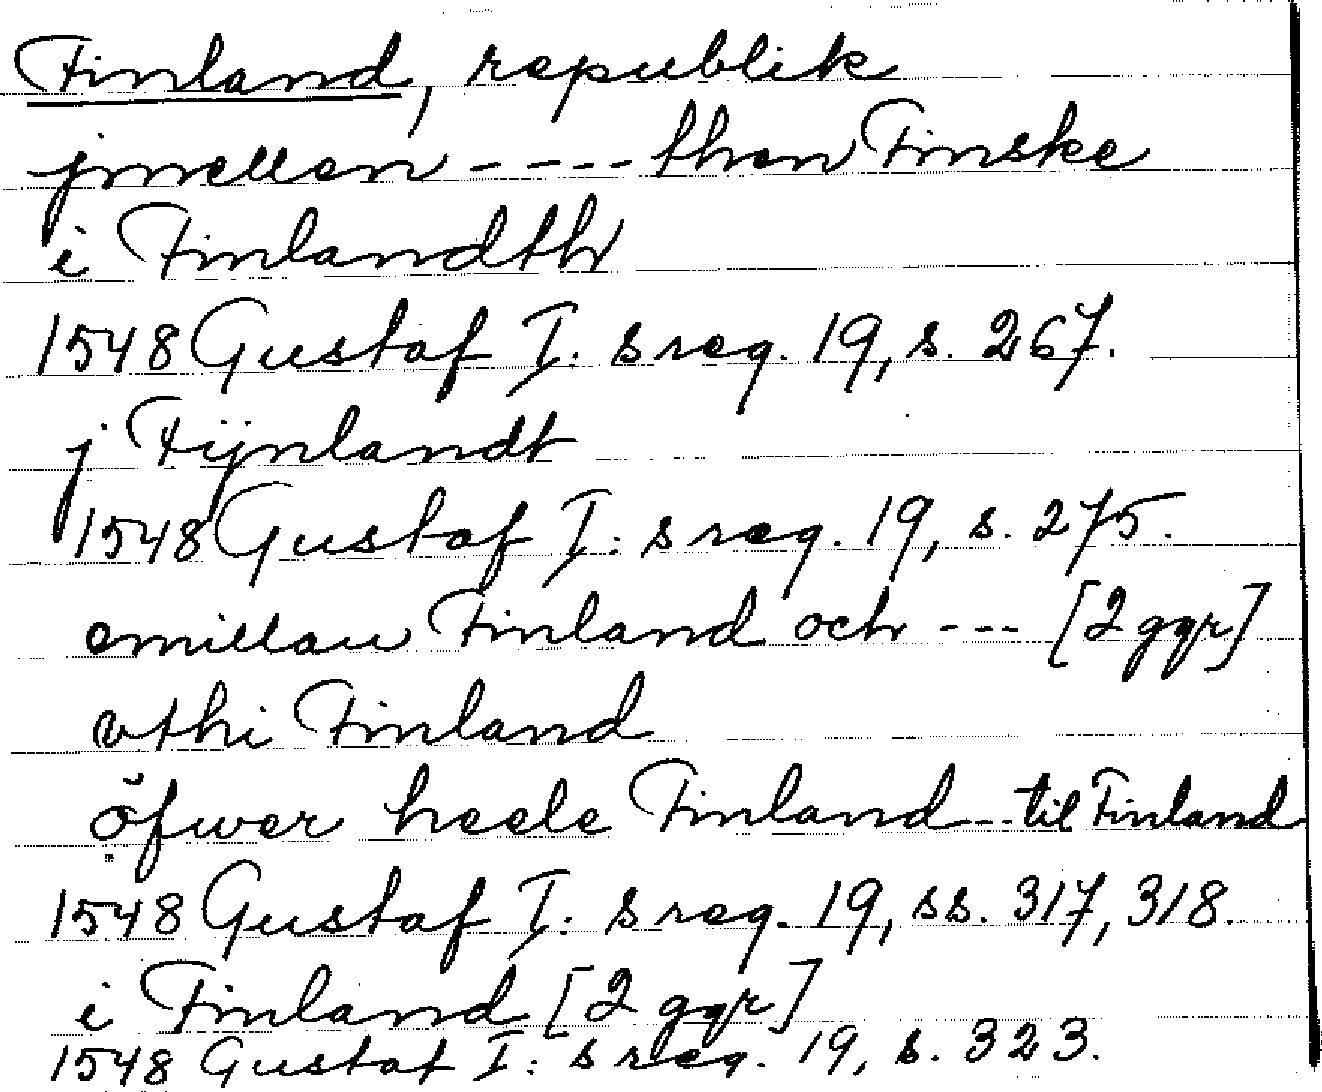 Finland, republik
jmellen ---- then Finske
i Finlandth
1548 Gustaf I: s reg. 19, s. 267.
j Fijnlandt
1548 Gustaf I: s reg. 19, s. 275.
emillan Finland och --- [2 ggr]
vthi Finland
öfwer heele Finland --- til Finland
1548 Gustaf I: s reg. 19, ss. 317, 318.
i Finland [2 ggr]
1548 Gustaf I: s reg. 19, s. 323.